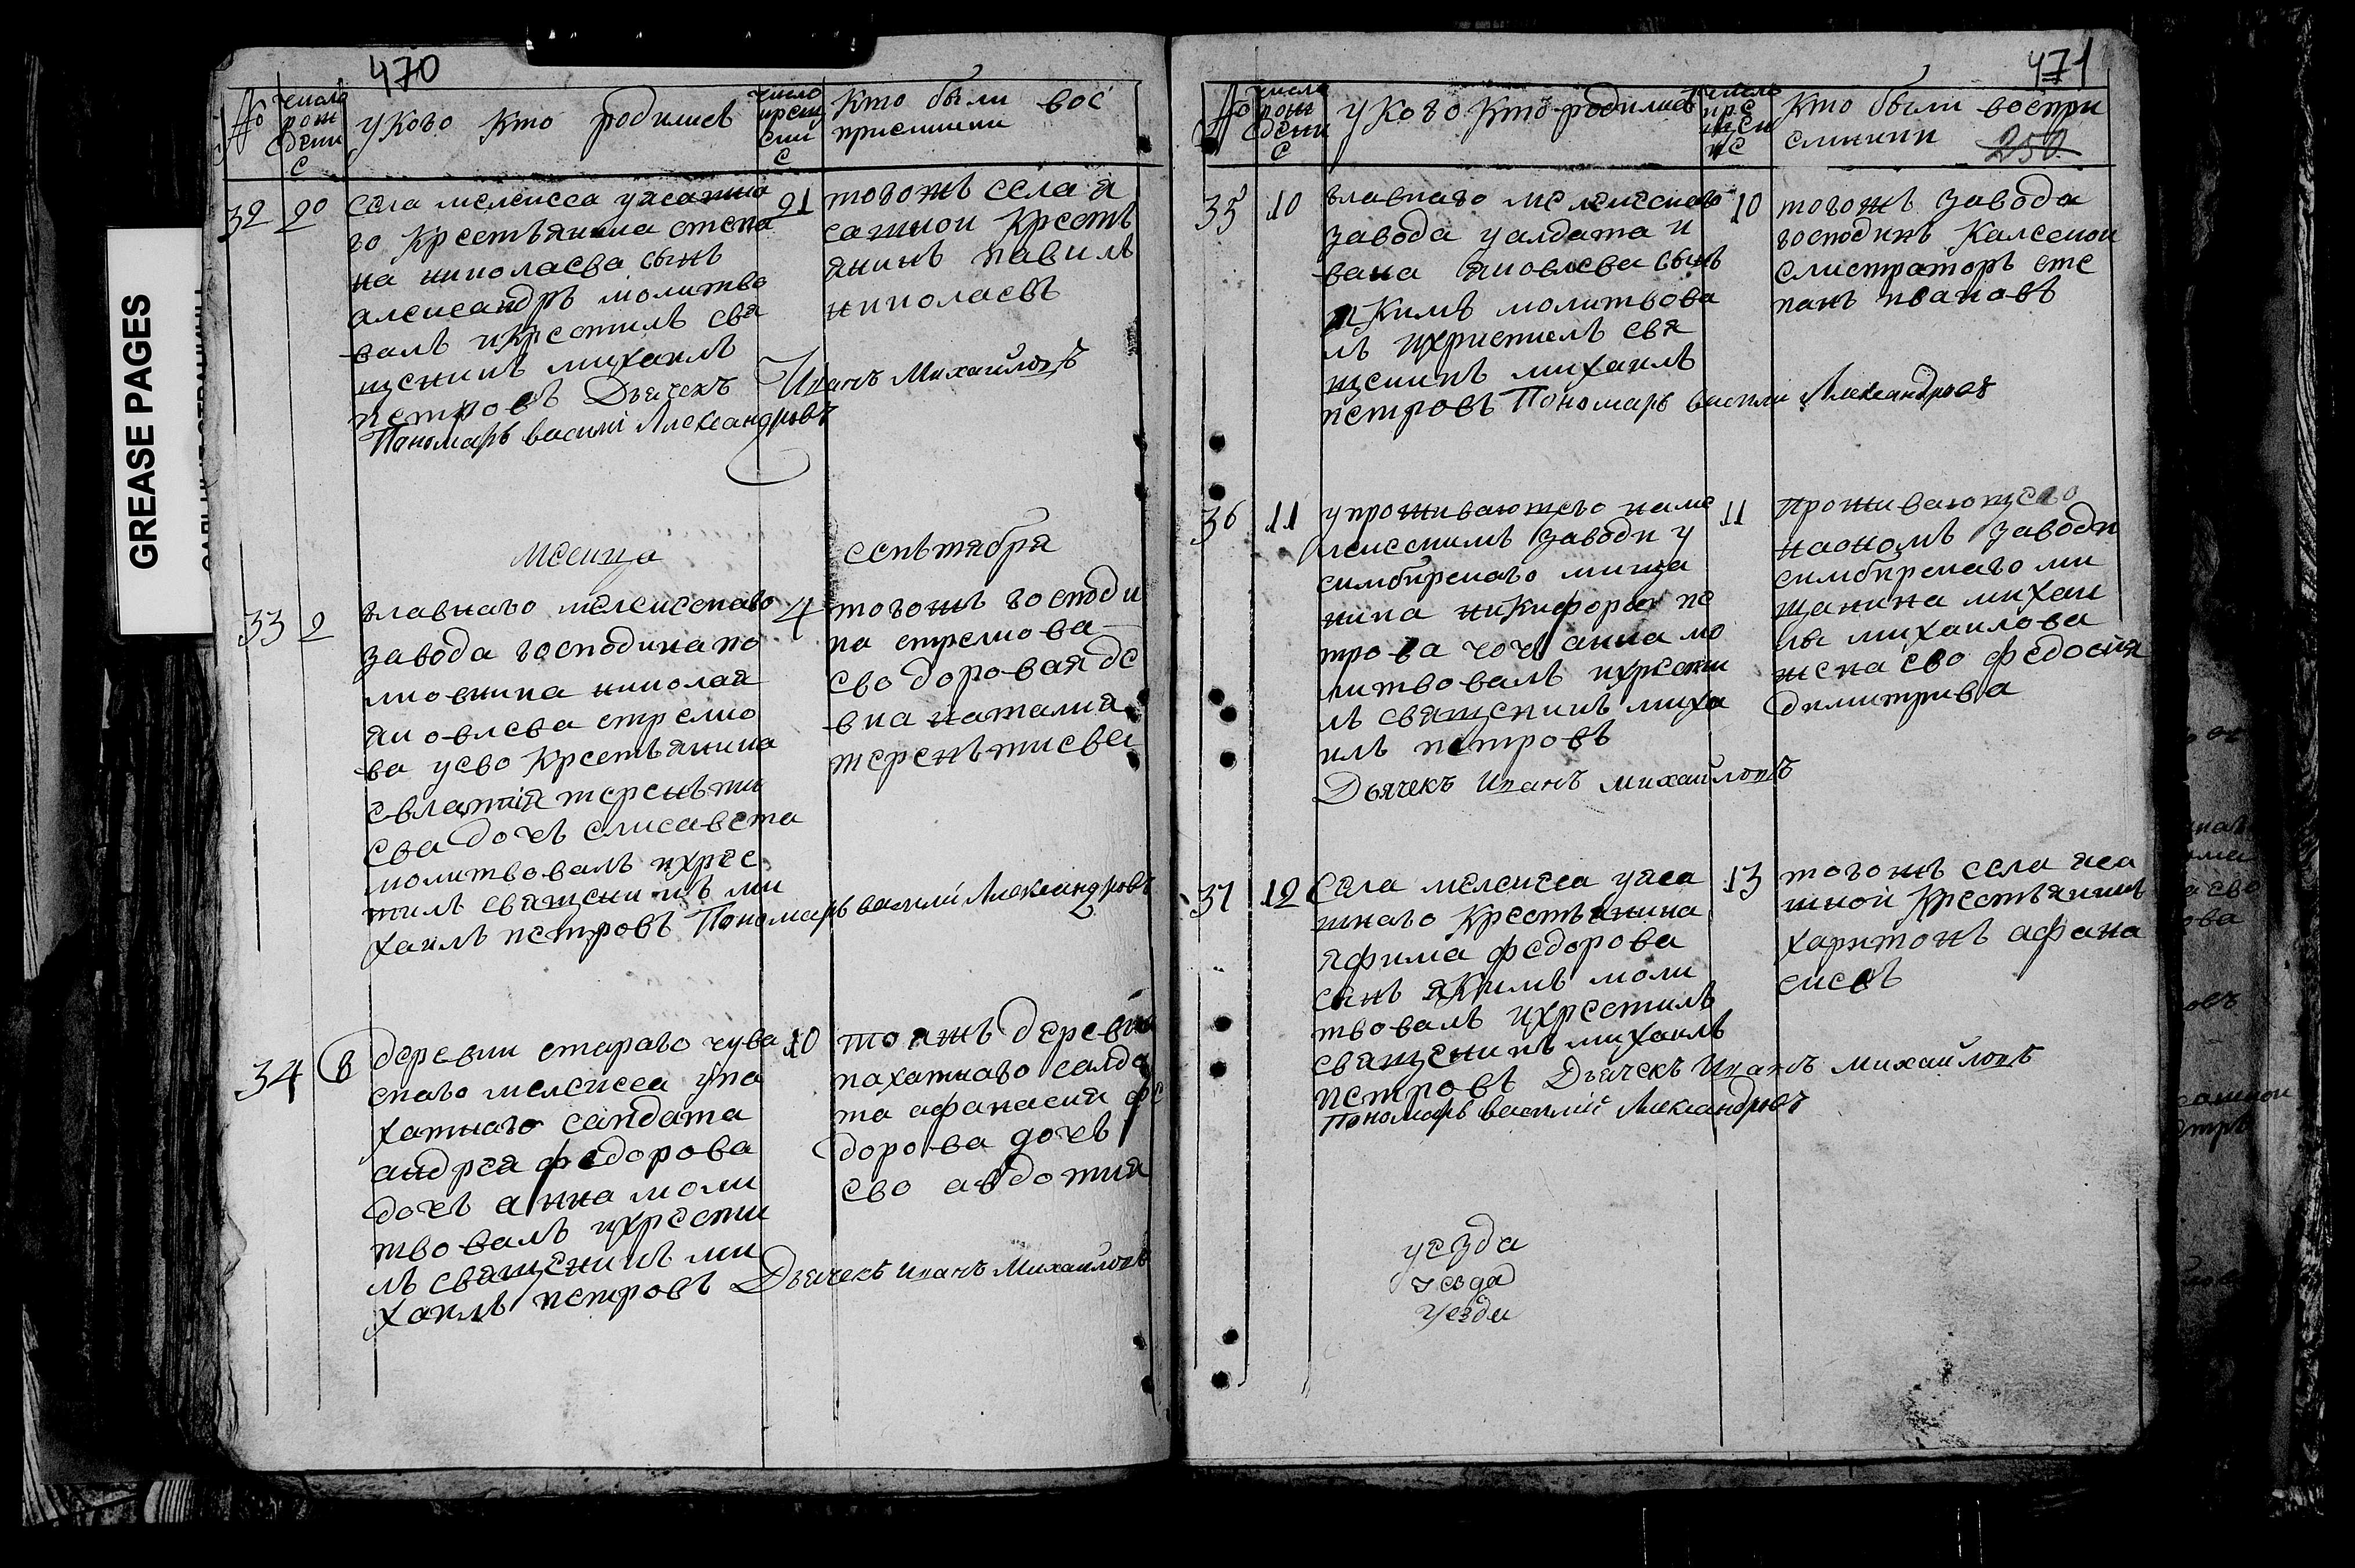 GREASE PAGES
470
№
число рож дени е
у Кого кто родилсъ
число крещ ени е
Кто были вос приемники
32 20
села мелексса уясашно
го Крестьянина степа
на николаева сынъ
александръ молитво
валъ икрестилъ свя
щеникъ михаилъ
петровъ Дьячекъ Иванъ Михайловъ
Пономарь василий Александровъ
21
тогожъ села я
сашной Кресть
янинъ павилъ
николаевъ
месица сеньтября
33 2
главнаго мелекескаго
завода господина по
лковника николая
яковлева стрелко
ва уево Крестьянина
терентти
ева дочь елисавета
молитвовалъ ихрес
тилъ священикъ ми
хаилъ петровъ Пономарь василий Александровъ
4
тогожъ господи
на стрелкова
ево дороваяде
вка наталия
тереньтиева
34 8
деревни стараго чува
скаго мелексса упа
хатнаго салдата
андрея федорова
дочь анна моли
твовалъ ихрести
лъ священикъ ми
хаилъ петровъ Дьячекъ Иванъ Михайловъ
10
тоажъ деревни
пахатнаго салда
та афанасия фе
дорова дочь
ево авдотия
471
№
число рож дени е
у Кого Кто родилисъ
число кре щени е
Кто были воспри емники
250
35 10
главнаго мелекескаго
завода уалдата и
вана яковлева сынъ
якимъ молитвова
лъ ихристилъ свя
щеникъ михаилъ
петровъ Пономарь василий Александровъ
10
тогожъ завода
господинъ Калсенои
елистраторъ сте
панъ ивановъ
36 11
упроживающего наме
лекескимъ заводи у
симбирскаго мища
нина никифора пе
трова дочь анна мо
литвовалъ ихрести
лъ священикъ миха
илъ петровъ
Дьячекъ Иванъ Михайловъ
11
проживающего
наономъ заводи
симбирскаго ми
щанина михаи
лы михаилова
жена ево федосия
димитрива
37 12
Села мелексса уяса
шнаго Крестьянина
яфима федорова
сынъ якимъ моли
твовалъ ихрестилъ
священикъ михаилъ
петровъ Дьячекъ Иванъ Михайловъ
Пономарь василий Александровъ
13
тогожъ села яса
шной Крестьянинъ
харитонъ афана
сиевъ
уезда
уезда
Уезди